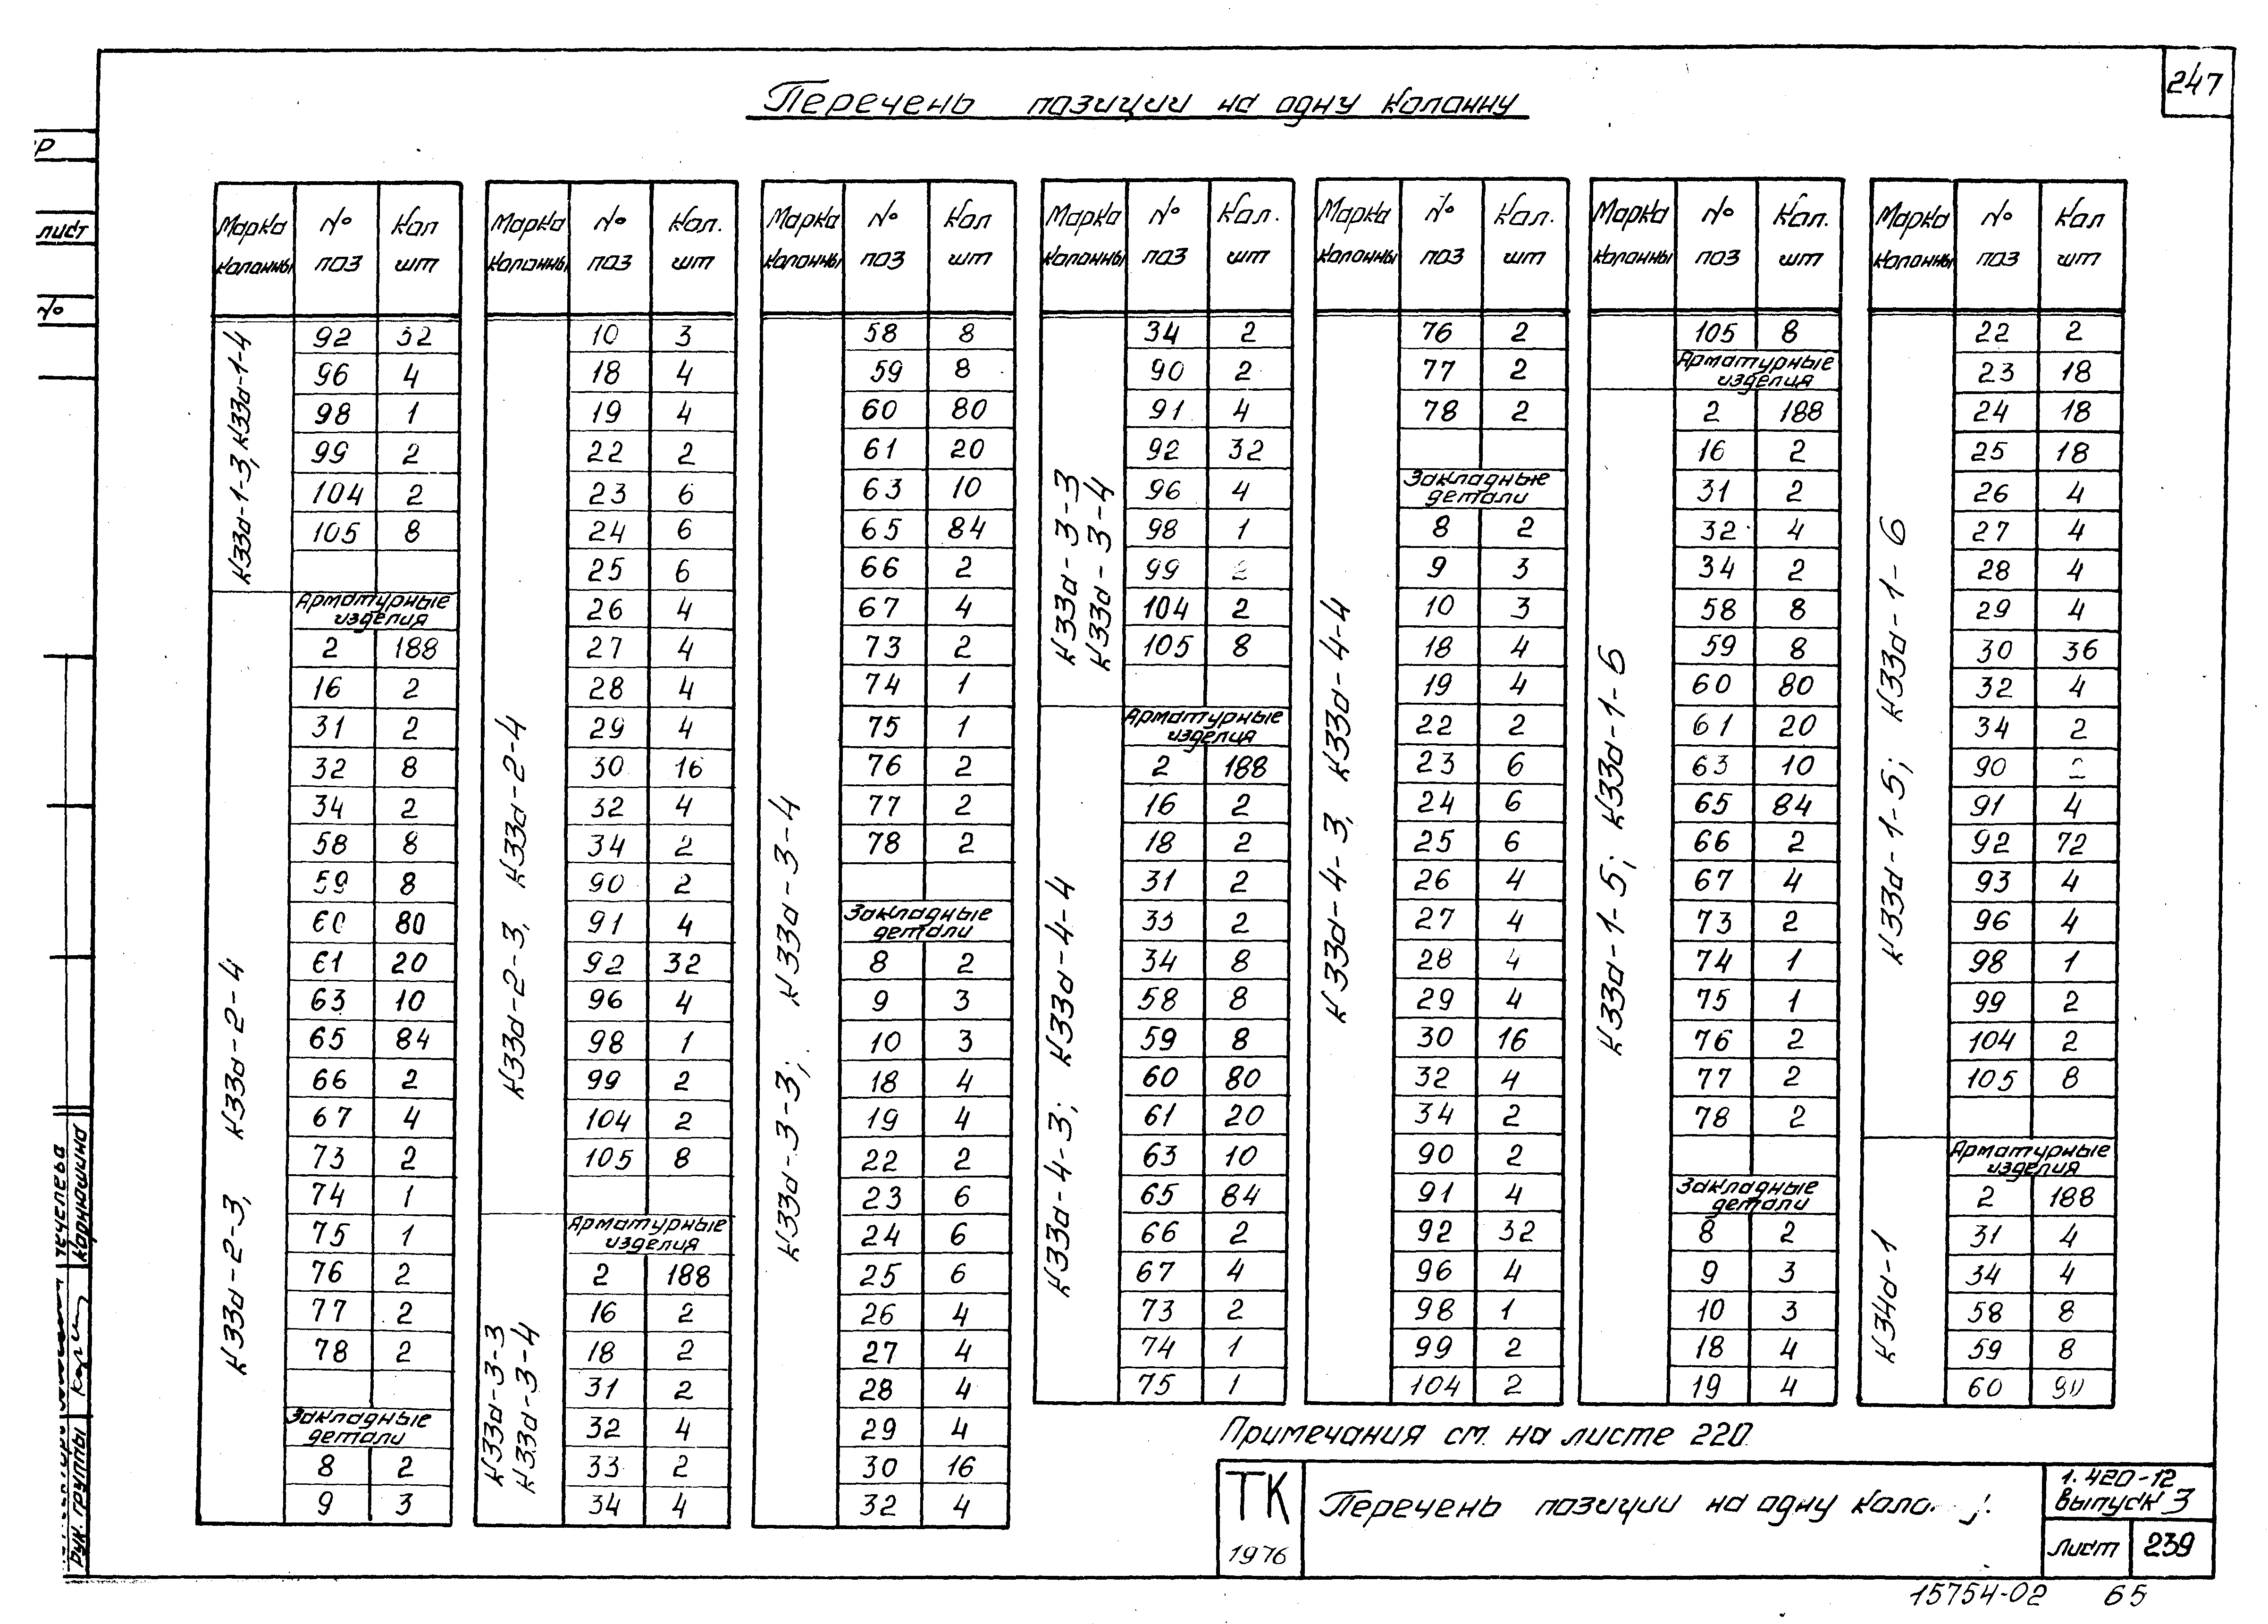 247
Перечень позиции на одну колонну
Р
лист
№
Марка колонны № поз Кол шт
К33д-1-3, К33д-1-4
92 32
96 4
98 1
99 2
104 2
105 8
К33д-2-3, К33д-2-4
Арматурные
изделия
2 188
16 2
31 2
32 8
34 2
58 8
59 8
60 80
61 20
63 10
65 84
66 2
67 4
73 2
74 1
75 1
76 2
77 2
78 2
Закладные
детали
8 2
9 3
Марка колонны № поз Кол. шт
К33д-2-3, К33д-2-4
10 3
18 4
19 4
22 2
23 6
24 6
25 6
26 4
27 4
28 4
29 4
30 16
32 4
34 2
90 2
91 4
92 32
96 4
98 1
99 2
104 2
105 8
К33д-3-3
К33д-3-4
Арматурные
изделия
2 188
16 2
18 2
31 2
32 4
33 2
34 4
Марка колонны № поз Кол шт
К33д-3-3; К33д-3-4
58 8
59 8
60 80
61 20
63 10
65 84
66 2
67 4
73 2
74 1
75 1
76 2
77 2
78 2
Закладные
детали
8 2
9 3
10 3
18 4
19 4
22 2
23 6
24 6
25 6
26 4
27 4
28 4
29 4
30 16
32 4
Марка колонны № поз Кол. шт
К33д-3-3
К33д-3-4
34 2
90 2
91 4
92 32
96 4
98 1
99 2
104 2
105 8
К33д-4-3; К33д-4-4
Арматурные
изделия
2 188
16 2
18 2
31 2
33 2
34 8
58 8
59 8
60 80
61 20
63 10
65 84
66 2
67 4
73 2
74 1
75 1
Марка колонны № поз Кол. шт
К33д-4-3, К33д-4-4
76 2
77 2
78 2
Закладные
детали
8 2
9 3
10 3
18 4
19 4
22 2
23 6
24 6
25 6
26 4
27 4
28 4
29 4
30 16
32 4
34 2
90 2
91 4
92 32
96 4
98 1
99 2
104 2
Марка колонны № поз Кол. шт
105 8
К33д-1-5; К33д-1-6
Арматурные
изделия
2 188
16 2
31 2
32 4
34 2
58 8
59 8
60 80
61 20
63 10
65 84
66 2
67 4
73 2
74 1
75 1
76 2
77 2
78 2
Закладные
детали
8 2
9 3
10 3
18 4
19 4
Марка колонны № поз Кол шт
К33д-1-5; К33д-1-6
22 2
23 18
24 18
25 18
26 4
27 4
28 4
29 4
30 36
32 4
34 2
90 2
91 4
92 72
93 4
96 4
98 1
99 2
104 2
105 8
К34д-1
Арматурные
изделия
2 188
31 4
34 4
58 8
59 8
60
Примечания см. на листе 220
ТК
1976
Перечень позиции на одну
1.420-12
выпуск 3
Лист 239
15754-02 65
Рук. группы Корнюшина
Чечелева